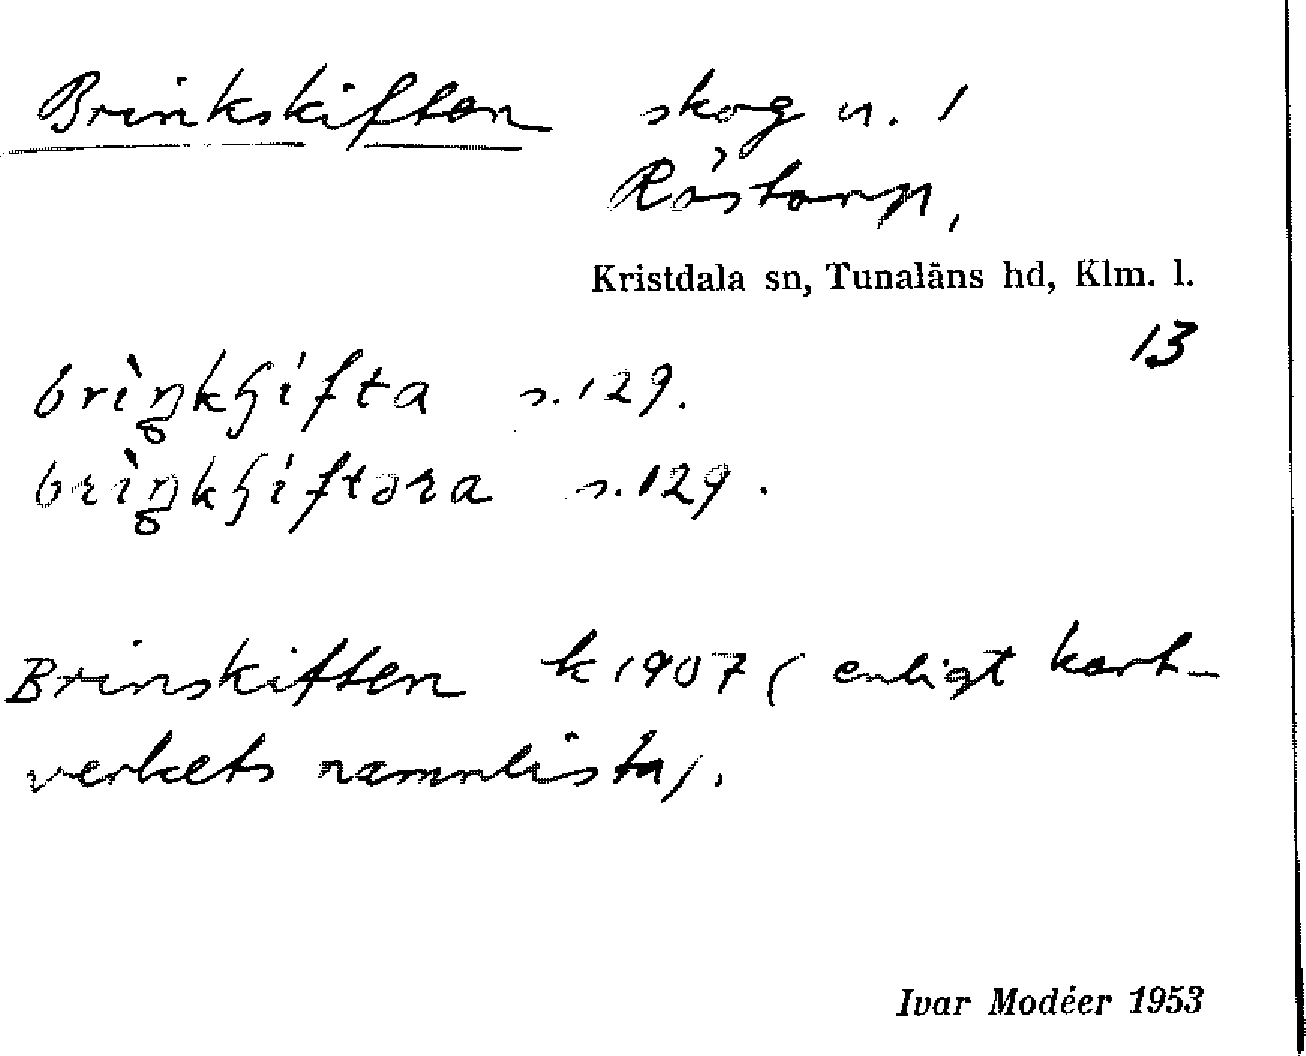 Brinkskiften skog n. 1
Röstorp,
Kristdala sn, Tunaläns hd, Klm. l.
13
s. 129.
s. 129.
Brinskiften k 1907 (enligt kart-
verkets namnlista).
Ivar Modéer 1953